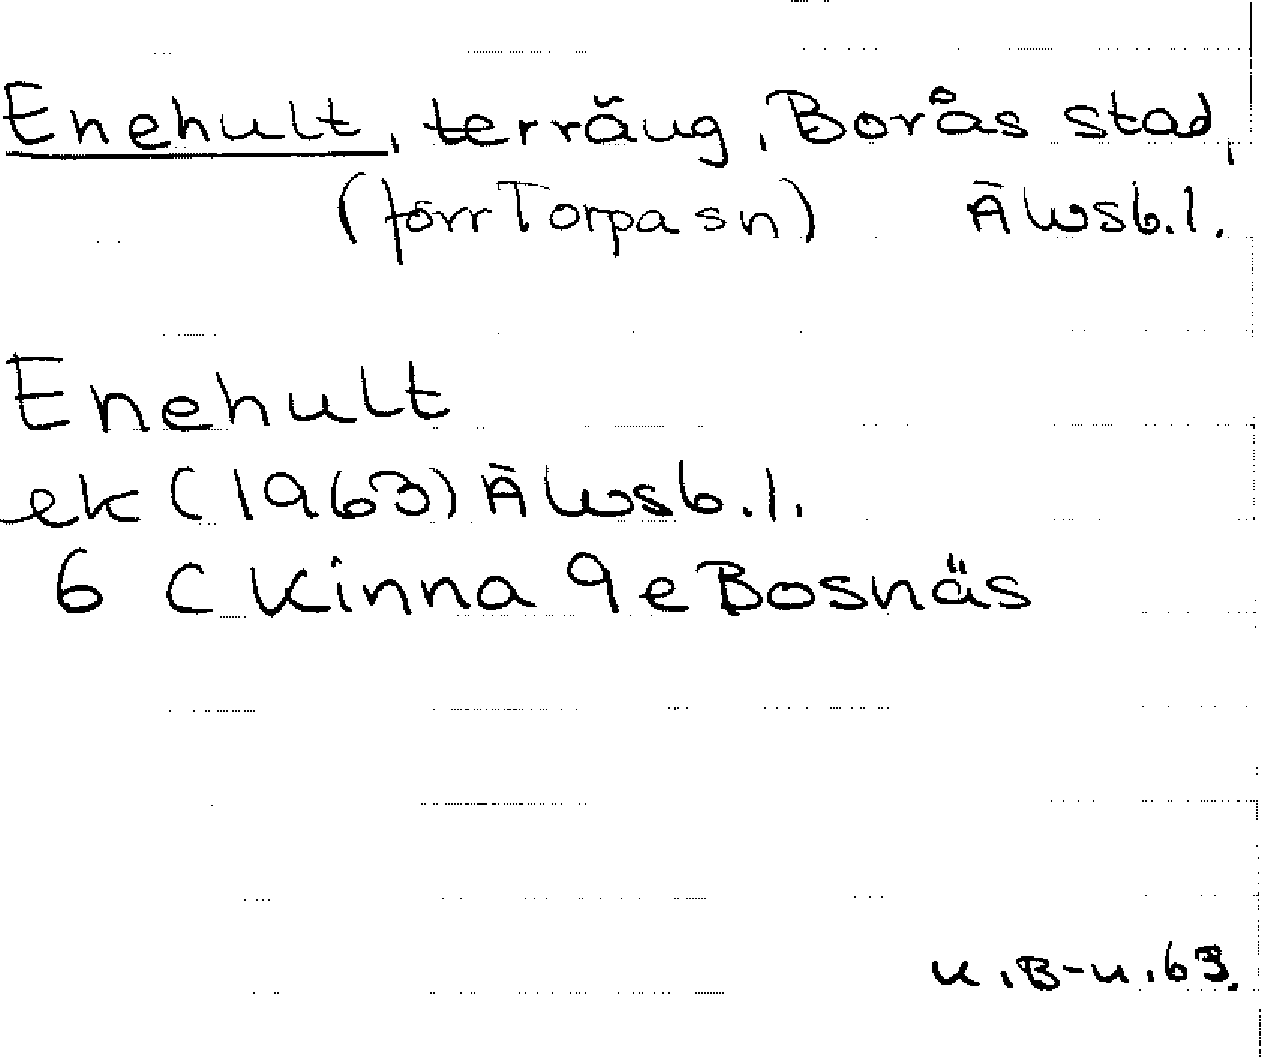 Enehult, terräng, Borås stad,
(förr Torpa sn) Älvsb.l.
Enehult
ek (1963) Älvsb.l.
6 C Kinna 9e Bosnäs